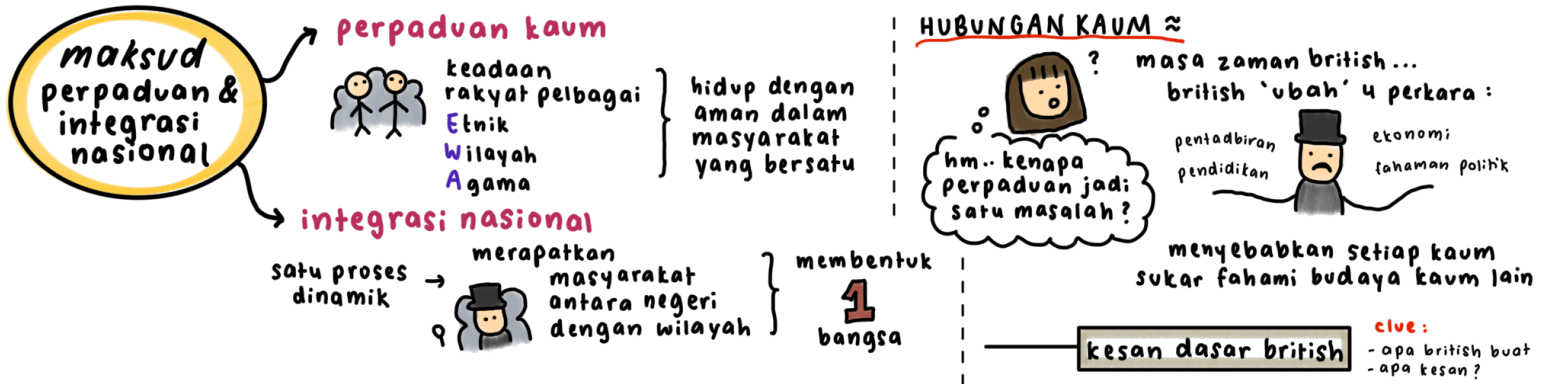 maksud
perpaduan &
integrasi
nasional
perpaduan kaum
keadaan
rakyat pelbagai
Etnik
Wilayah
Agama
hidup dengan
aman dalam
masyarakat
yang bersatu
integrasi nasional
satu proses
dinamik
merapatkan
masyarakat
antara negeri
dengan wilayah
membentuk
1
bangsa
HUBUNGAN KAUM ≈
?
hm.. kenapa
perpaduan jadi
satu masalah?
masa zaman british...
british 'ubah' 4 perkara :
pentadbiran
pendidikan
ekonomi
fahaman politik
menyebabkan setiap kaum
sukar fahami budaya kaum lain
kesan dasar british
clue :
- apa british buat
- apa kesan?